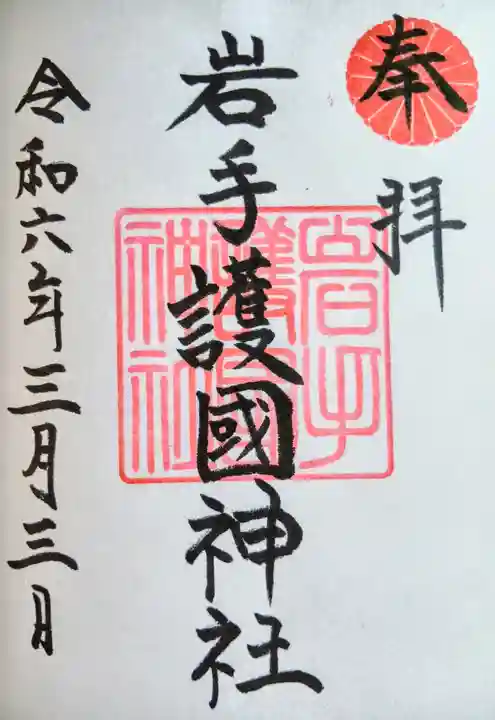 奉拝
岩手護國神社
岩手
護國
神社
令和六年三月三日